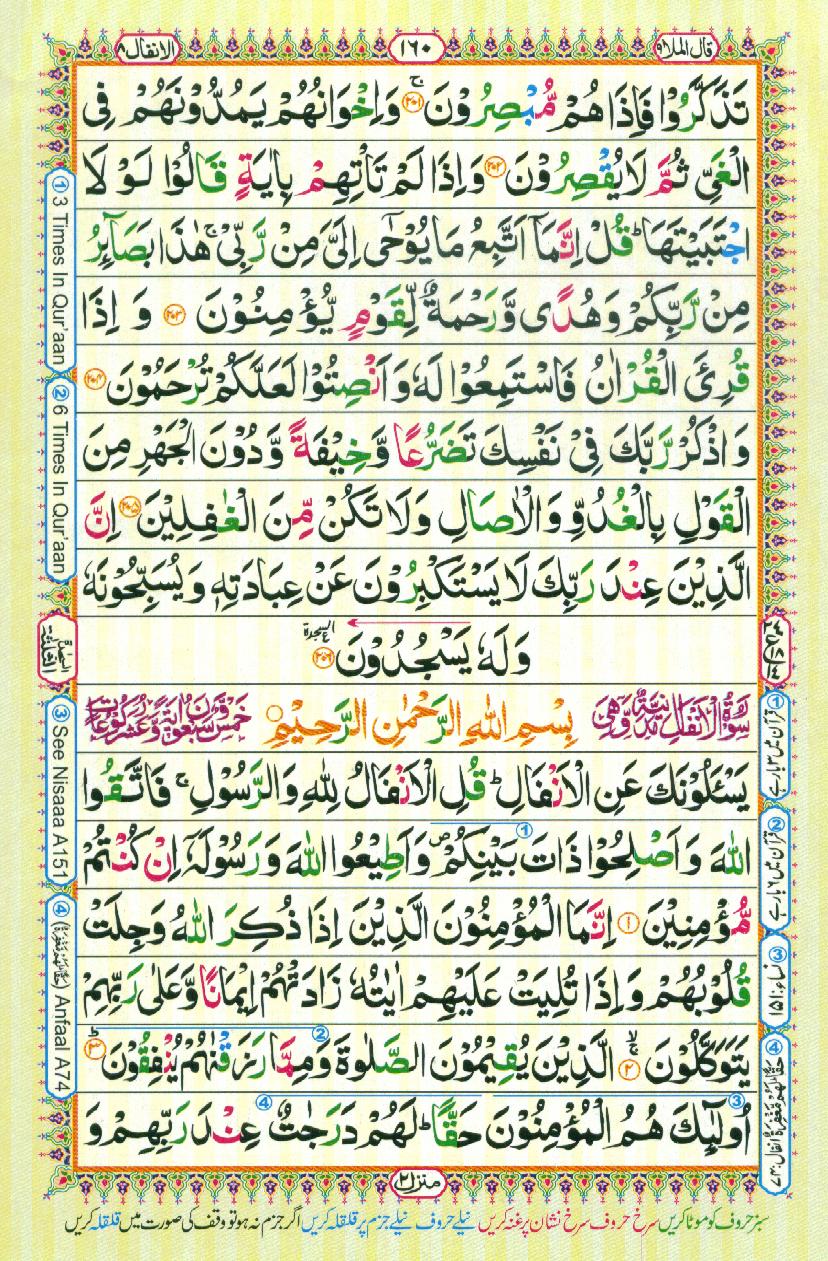 قال الملا ٩
١٦٠
الانفال ٨
تَذَكَّرُوْا فَاِذَا هُمْ مُّبْصِرُوْنَ ﴿۲۰۱﴾ۚ وَاِخْوَانُهُمْ يَمُدُّوْنَهُمْ فِى
الْغَىِّ ثُمَّ لَا يُقْصِرُوْنَ ﴿۲۰۲﴾ وَاِذَا لَمْ تَاْتِهِمْ بِاٰيَةٍ قَالُوْا لَوْ لَا
اجْتَبَيْتَهَا ؕ قُلْ اِنَّمَاۤ اَتَّبِعُ مَا يُوْحٰۤى اِلَىَّ مِنْ رَّبِّىْ ۚ هٰذَا بَصَآئِرُ
مِنْ رَّبِّكُمْ وَهُدًى وَّرَحْمَةٌ لِّقَوْمٍ يُّؤْمِنُوْنَ ﴿۲۰۳﴾ وَاِذَا
قُرِئَ الْقُرْاٰنُ فَاسْتَمِعُوْا لَهٗ وَاَنْصِتُوْا لَعَلَّكُمْ تُرْحَمُوْنَ ﴿۲۰۴﴾
وَاذْكُرْ رَّبَّكَ فِىْ نَفْسِكَ تَضَرُّعًا وَّخِيْفَةً وَّدُوْنَ الْجَهْرِ مِنَ
الْقَوْلِ بِالْغُدُوِّ وَالْاٰصَالِ وَلَا تَكُنْ مِّنَ الْغٰفِلِيْنَ ﴿۲۰۵﴾ اِنَّ
الَّذِيْنَ عِنْدَ رَبِّكَ لَا يَسْتَكْبِرُوْنَ عَنْ عِبَادَتِهٖ وَيُسَبِّحُوْنَهٗ
وَلَهٗ يَسْجُدُوْنَ ﴿۲۰۶﴾ السجدة
سُوْرَةُ الْاَنْفَالِ مَدَنِيَّةٌ وَّهِىَ بِسْمِ اللهِ الرَّحْمٰنِ الرَّحِيْمِ خَمْسٌ وَّسَبْعُوْنَ اٰيَةً وَّعَشْرُ رُكُوْعَاتٍ
يَسْئَلُوْنَكَ عَنِ الْاَنْفَالِ ؕ قُلِ الْاَنْفَالُ لِلّٰهِ وَالرَّسُوْلِ ۚ فَاتَّقُوا
اللهَ وَاَصْلِحُوْا ذَاتَ بَيْنِكُمْ ۪ وَاَطِيْعُوا اللهَ وَرَسُوْلَهٗۤ اِنْ كُنْتُمْ
مُّؤْمِنِيْنَ ﴿۱﴾ اِنَّمَا الْمُؤْمِنُوْنَ الَّذِيْنَ اِذَا ذُكِرَ اللهُ وَجِلَتْ
قُلُوْبُهُمْ وَاِذَا تُلِيَتْ عَلَيْهِمْ اٰيٰتُهٗ زَادَتْهُمْ اِيْمَانًا وَّعَلٰى رَبِّهِمْ
يَتَوَكَّلُوْنَ ﴿۲﴾ۚۖ الَّذِيْنَ يُقِيْمُوْنَ الصَّلٰوةَ وَمِمَّا رَزَقْنٰهُمْ يُنْفِقُوْنَ ﴿۳﴾ؕ
اُولٰٓئِكَ هُمُ الْمُؤْمِنُوْنَ حَقًّا ؕ لَهُمْ دَرَجٰتٌ عِنْدَ رَبِّهِمْ وَ
منزل ٢
سبز حروف کو موٹا کریں سرخ حروف سرخ نشان پر غنہ کریں نیلے حروف نیلے جزم پر قلقلہ کریں اگر جزم نہ ہو تو وقف کی صورت میں قلقلہ کریں
① 3 Times In Qur'aan
② 6 Times In Qur'aan
③ See Nisaaa A151
④ (حَقًّا لَهُمْ مَّغْفِرَةٌ) Anfaal A74
① قرآن میں ۳ بار ہے
② قرآن میں ۶ بار ہے
③ نساء: ۱۵۱
④ حَقًّا لَهُمْ مَّغْفِرَةٌ انفال: ۷۴